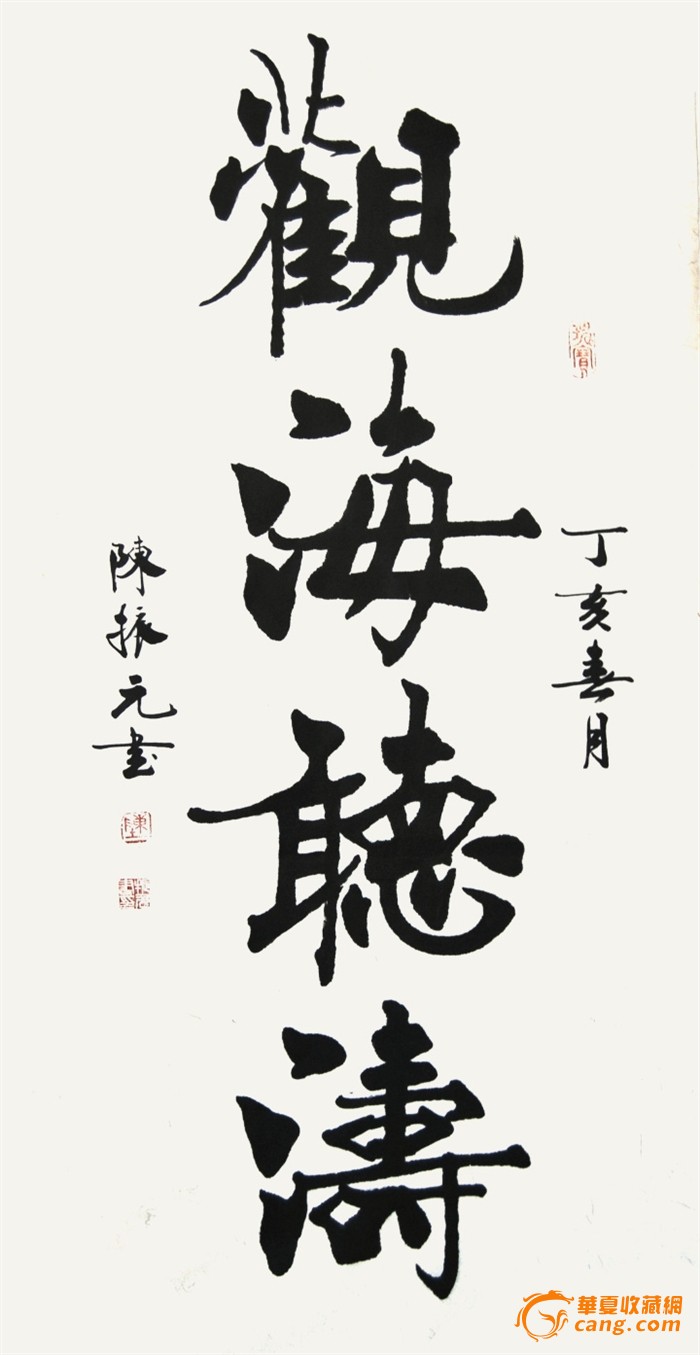 丁亥春月
觀海聽濤
陳振元書
華夏收藏網
cang.com